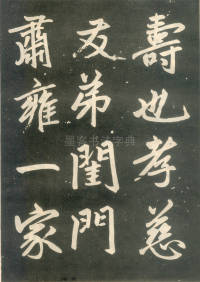 壽也孝慈
友弟閨門
肅雍一家
墨客书法字典